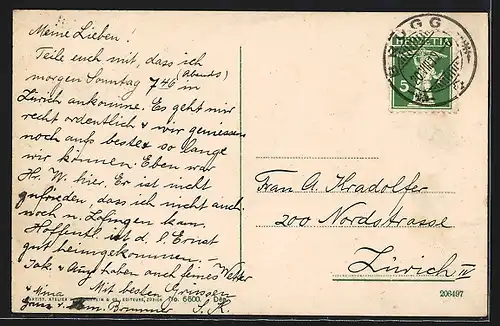 Meine Lieben!
Teile euch mit, dass ich
morgen Sonntag 7 46 (abends) in
Zürich ankomme. Es geht mir
recht ordentlich & wir geniessen
noch aufs beste so lange
wir können. Eben war
Hr. W. hier. Er ist nicht
zufrieden, dass ich nicht auch
noch n. Zofingen kam.
Hoffentl. ist d. l. Ernst
gut heimgekommen. -
Jak. & haben auch feines Wetter
& Mina Mit besten Grüssen
Brunner
BRUGG
HELVETIA
5
Frau A. Hradolfer
200 Nordstrasse
Zürich IV
ARTIST. ATELIER & CO. EDITEURS, ZÜRICH No. 6600. Dép.
206497